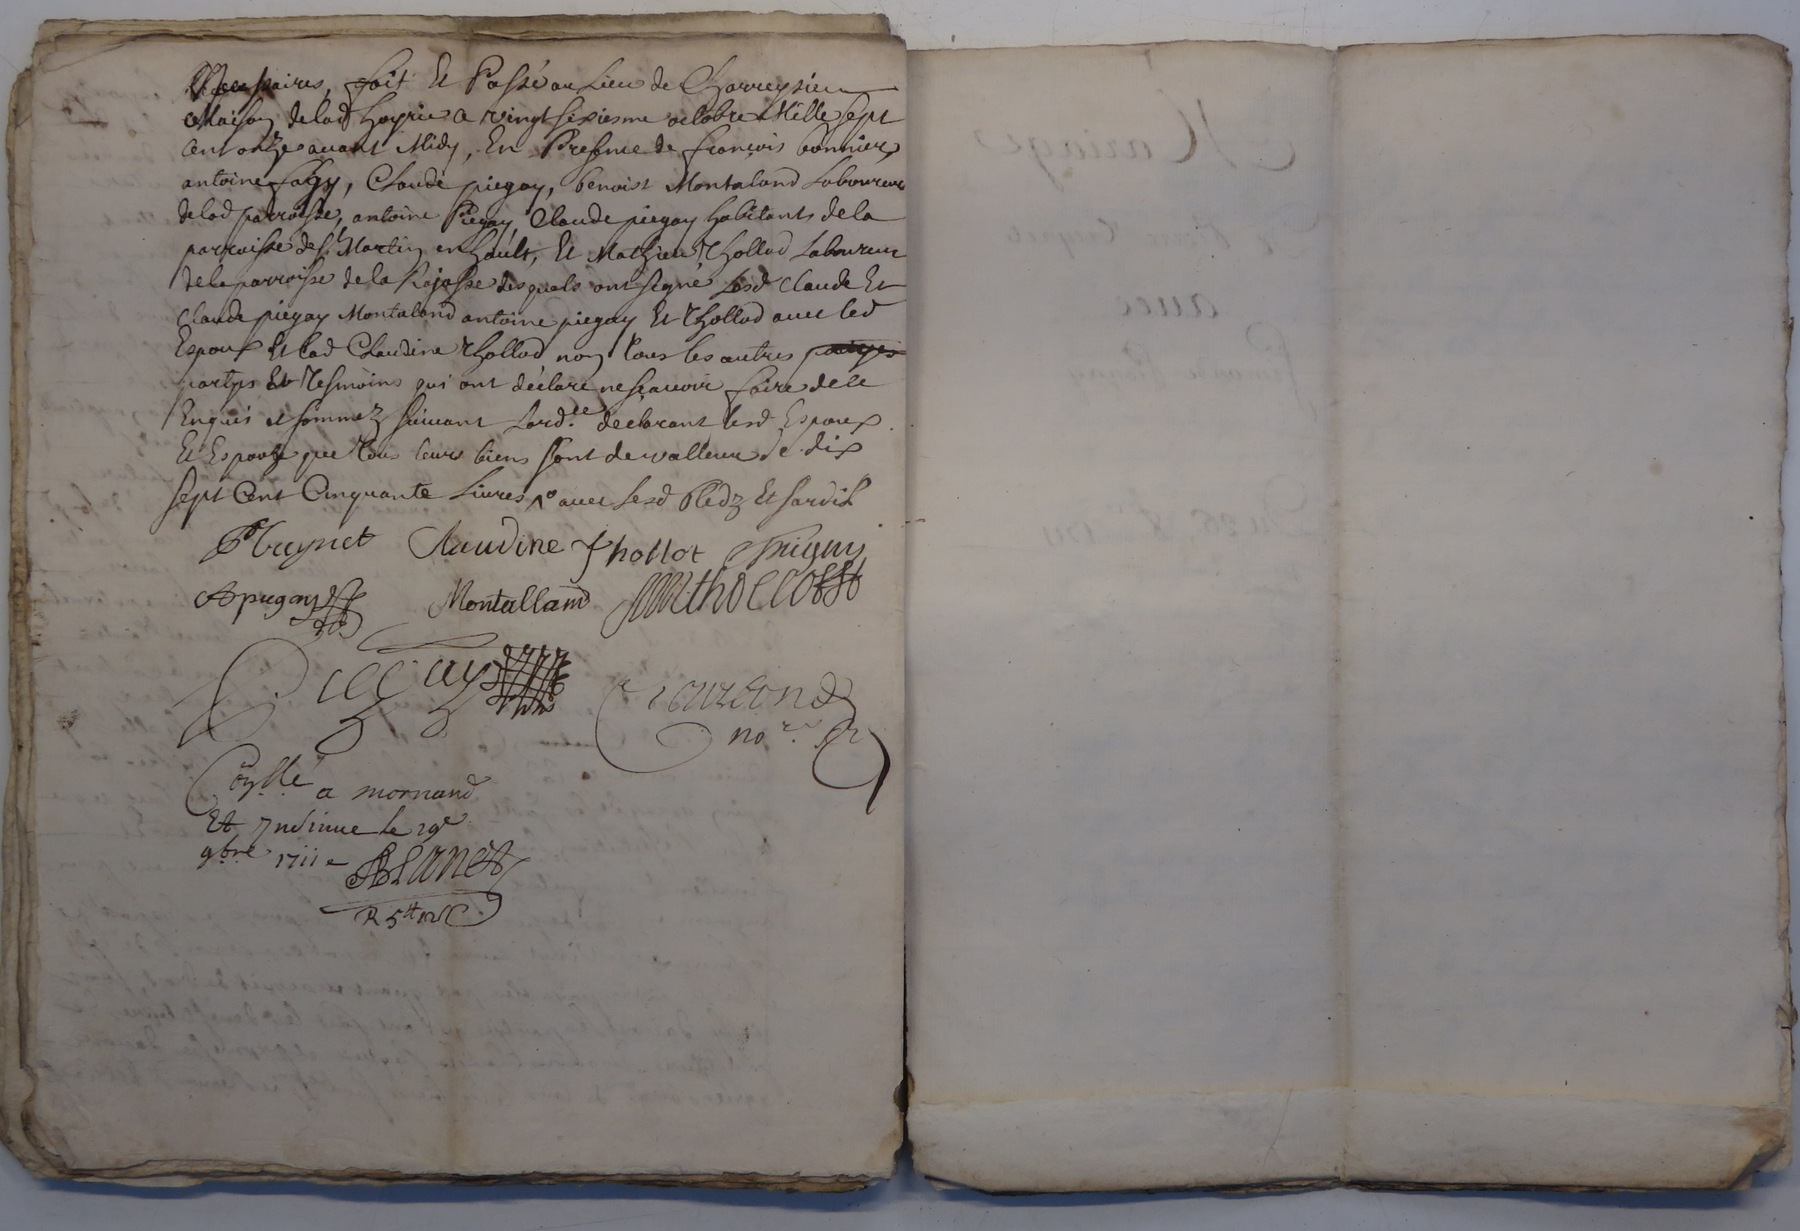 Necessaires, fait Et Passé au Lieu de Charreysieu
Maison de lad hoyrie a vingt sixiesme octobre Mille sept
cent onze avant Midy, En Presence de françois bonnier
antoine fagy, Claude piegay, benoist Montaland Laboureur
de lad parroisse, antoine Piegay, Claude piegay habitants de la
parroisse de St Martin en hault, Et Mathieu Thollod Laboureur
de la parroisse de la Rajasse desquels ont signé Lesd Claude Et
Claude piegay Montaland antoine piegay Et Thollod avec led
Espoux Et lad Claudine Thollod non tous les autres
partyes Et Tesmoins qui ont déclaré ne sçavoir faire de ce
Enquis et sommez suivant Lord.ce declarant lesd Espoux
Et Espouze que Tous leurs biens sont de valleur de dix
sept Cent Cinquante Livres avec Lesd
Claudine thollot
Apiegay Montalland
Piegay
no.re
a mornand
Et Insinué le 19e
9bre 1711
R 5tt
Mariage
avec